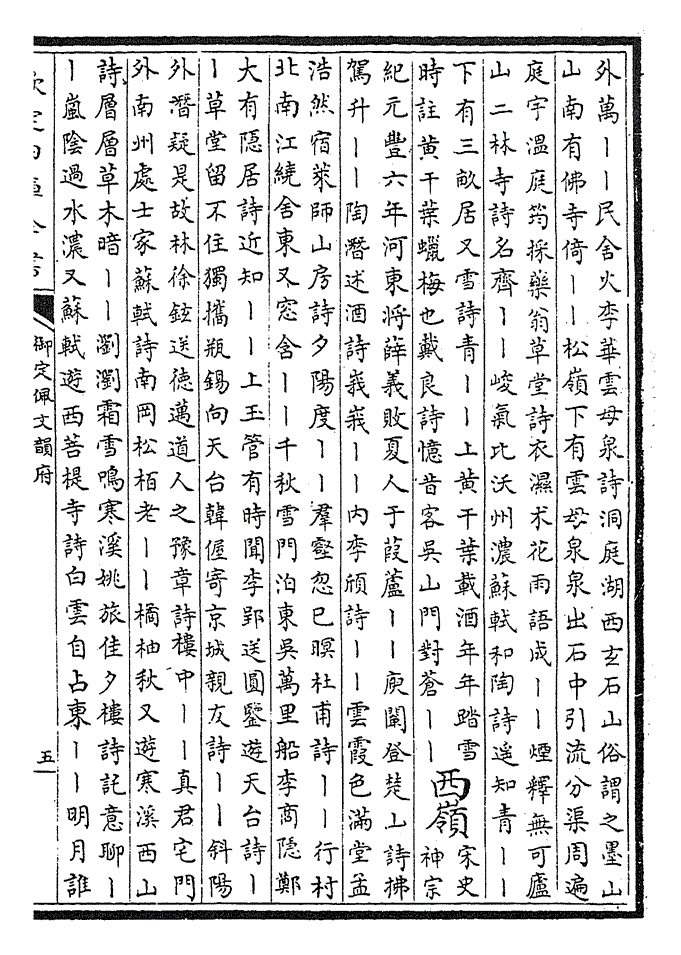 外萬丨丨民舍火李華雲母泉詩洞庭湖西玄石山俗謂之墨山
山南有佛寺倚丨丨松嶺下有雲母泉泉出石中引流分渠周遍
庭宇溫庭筠採藥翁草堂詩衣濕术花雨語成丨丨煙釋無可廬
山二林寺詩名齊丨丨峻氣比沃州濃蘇軾和陶詩遥知青丨丨
下有三畝居又雪詩青丨丨上黄千葉載酒年年踏雪
時註黄千葉蠟梅也戴良詩憶昔客吳山門對蒼丨丨
西嶺
宋史
神宗
紀元豐六年河東將薛義敗夏人于葭蘆丨丨庾闡登楚山詩拂
駕升丨丨陶潛述酒詩峩峩丨丨内李頎詩丨丨雲霞色滿堂孟
浩然宿萊師山房詩夕陽度丨丨羣壑忽已暝杜甫詩丨丨行村
北南江繞舍東又窓含丨丨千秋雪門泊東吳萬里船李商隱鄭
大有隱居詩近知丨丨上玉管有時聞李郢送圓鑒遊天台詩丨
丨草堂留不住獨攜瓶錫向天台韓偓寄京城親友詩丨丨斜陽
外潛疑是故林徐鉉送德邁道人之豫章詩樓中丨丨真君宅門
外南州處士家蘇軾詩南岡松柏老丨丨橘柚秋又遊寒溪西山
詩層層草木暗丨丨瀏瀏霜雪鳴寒溪姚旅佳夕樓詩記意聊丨
丨嵐陰過水濃又蘇軾遊西菩提寺詩白雲自占東丨丨明月誰
御定佩文韻府
五